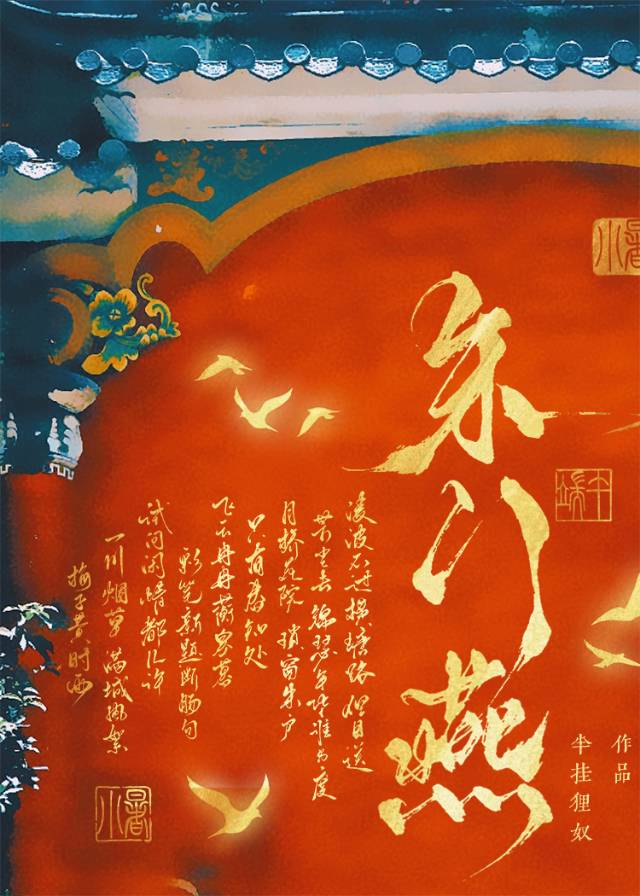 小暑
朱门燕
端午
作品
半挂狸奴
凌波不过横塘路 但目送
芳尘去 锦瑟年华谁与度
月桥花院 琐窗朱户
只有春知处
飞云冉冉蘅皋暮
彩笔新题断肠句
试问闲情都几许
一川烟草 满城风絮
梅子黄时雨
小暑